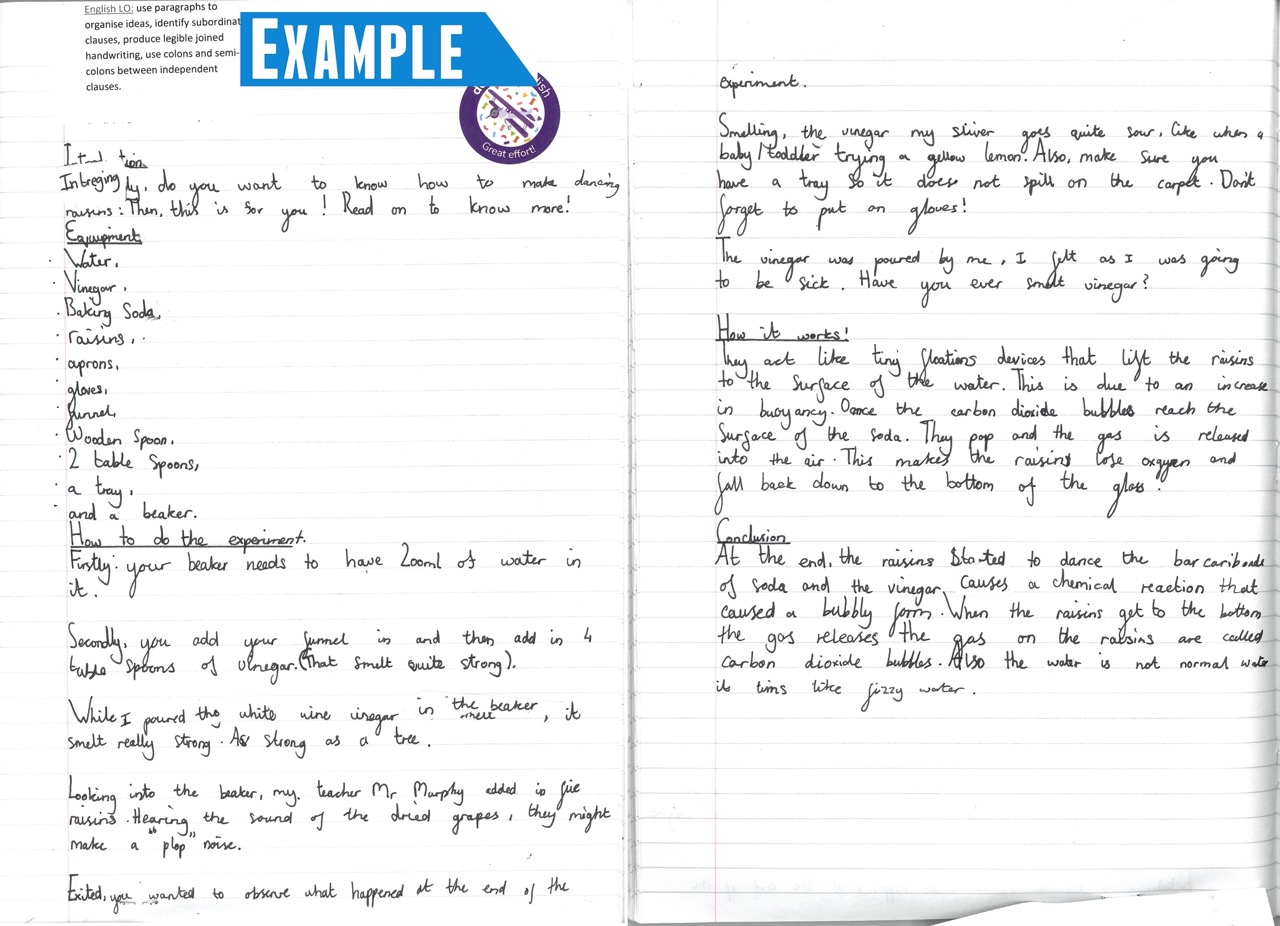 English LO: use paragraphs to
organise ideas, identify subordinat
clauses, produce legible joined
handwriting, use colons and semi-
colons between independent
clauses.
EXAMPLE
Great effort!
Intregingly, do you want to know how to make dancing
raisins: Then, this is for you! Read on to know more!
Equuipment
· Water,
· Vinegar,
· Baking Soda,
· raisins,
· aprons,
· gloves,
· funnel,
· Wooden Spoon,
· 2 table Spoons,
· a tray,
· and a beaker.
How to do the experiment.
Firstly: your beaker needs to have 200ml of water in
it.
Secondly, you add your funnel in and then add in 4
table spoons of vinegar. (That smelt quite strong).
While I poured the white wine vinegar in the beaker, it
smelt really strong. As strong as a tree.
Looking into the beaker, my teacher Mr Murphy added in five
raisins. Hearing the sound of the dried grapes, they might
make a "plop" noise.
Exited, you wanted to observe what happened at the end of the
experiment.
Smelling, the vinegar my sliver goes quite sour, like when a
baby/toddler trying a yellow lemon. Also, make sure you
have a tray so it does not spill on the carpet. Don't
forget to put on gloves!
The vinegar was poured by me, I felt as I was going
to be sick. Have you ever smelt vinegar?
How it works!
They act like tiny floations devices that lift the raisins
to the surface of the water. This is due to an increase
in buoyancy. Oance the carbon dioxide bubbles reach the
surface of the soda. They pop and the gas is released
into the air. This makes the raisins lose oxgyen and
fall back down to the bottom of the glass.
Conclusion
At the end, the raisins started to dance the barcaribonde
of soda and the vinegar causes a chemical reaction that
caused a bubbly form. When the raisins get to the bottom
the gas releases the gas on the raisins are called
carbon dioxide bubbles. Also the water is not normal wate
it tirns like fizzy water.